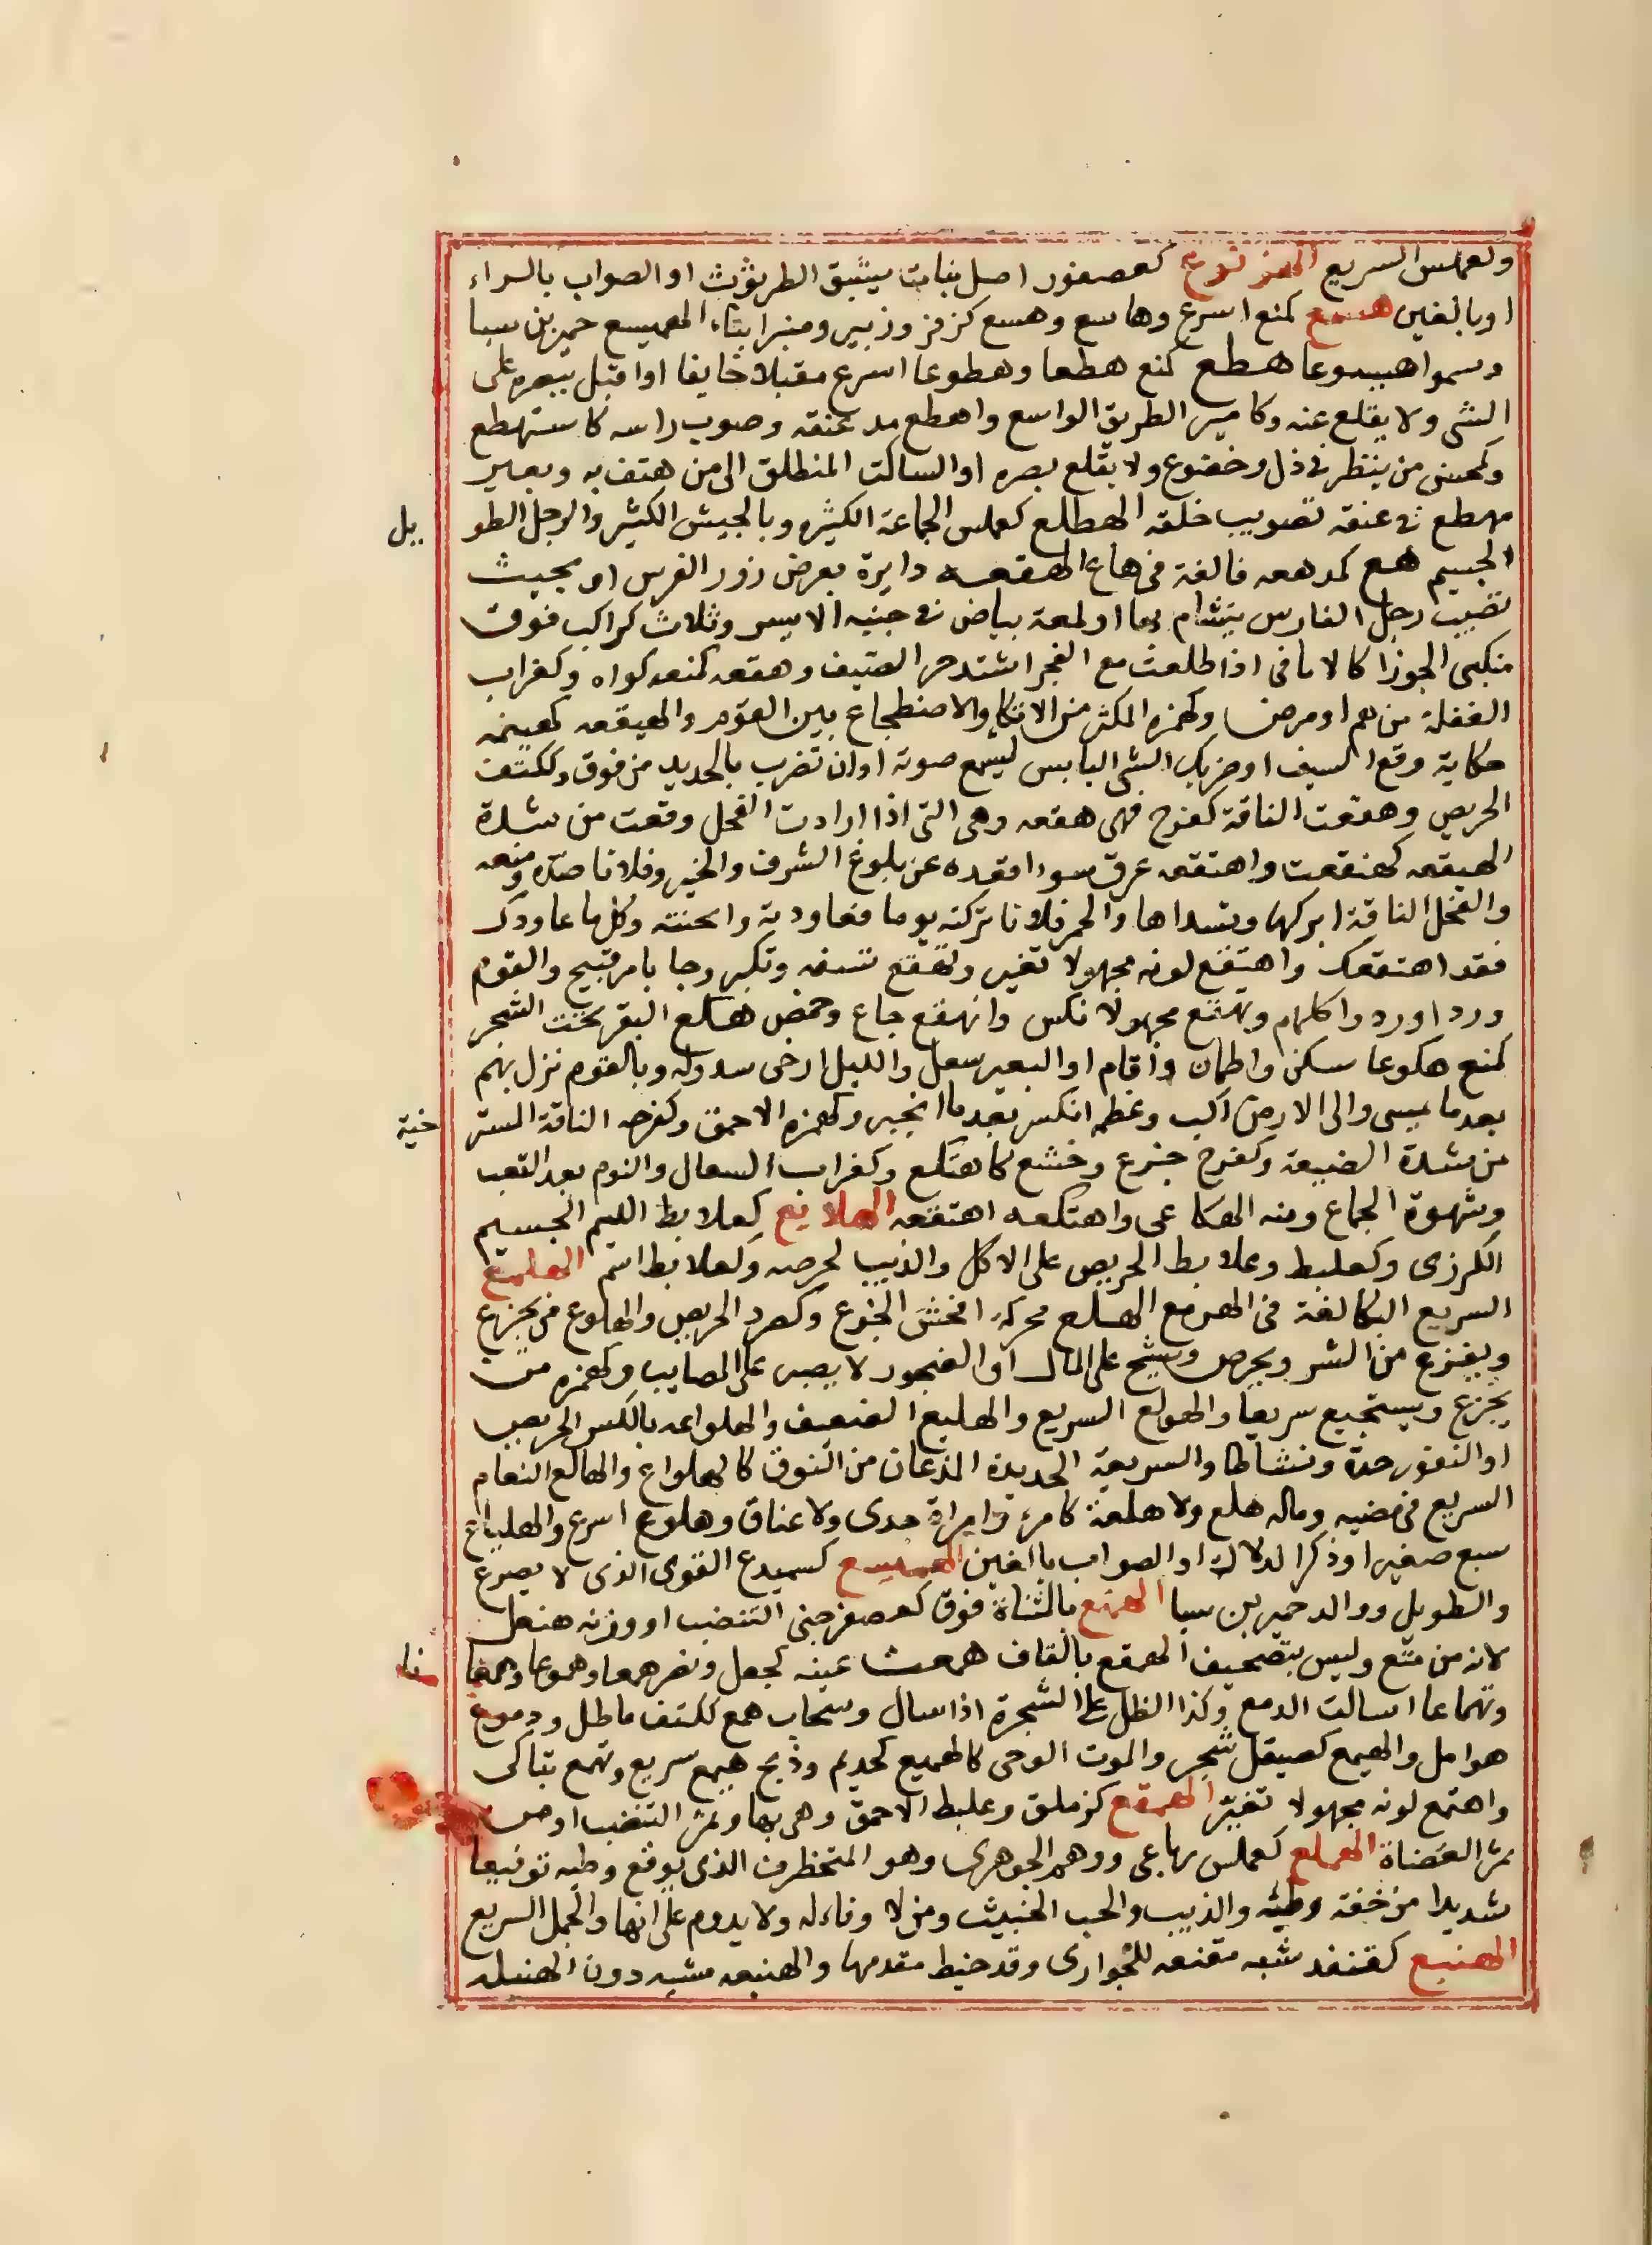 ولعملس السريع الهزنوع كعصفور اصل نبات يشبه الطرثوث او الصواب بالراء
او بالغين هسع كمنع اسرع وهاسع وهسع كزفر وزبير ومنبر ابناء الهميسع حمير بن سبا
وسموا هيسوعا هطع كمنع هطعا وهطوعا اسرع مقبلا خايفا او اقبل ببصره على
الشى ولا يقلع عنه وكامير الطريق الواسع واهطع مد عنقه وصوب راسه كاستهطع
وكمحسن من ينظر فى ذل وخضوع ولا يقلع بصره او الساكت المنطلق الى من هتف به وبعير
مهطع فى عنقه تصويب خلقه الهطلع كعملس الجماعة الكثيره وبالجيش الكثير والرجل الطو يل
الجسيم هع كمد هعه فالغة فى هاع الهقعه دايرة بعرض زور الفرس او بحيث
تصيب رجل الفارس يتشام بها او لمعة بياض فى جنبه الايسر وثلاث كواكب فوق
منكبى الجوزا كالاثافى اذا طلعت مع الفجر اشتد حر الصيف وهقعه كمنعه كواه وكغراب
الغفلة من هم او مرض وكهمزه المكثر من الاتكا والاضطجاع بين القوم والهيقعه كهينمه
حكاية وقع السيف او ضربك الشى اليابس ليسمع صوته او ان تضرب بالحديد من فوق وككتف
الحريص وهقعت الناقة كفرح فهى هقعه وهى التى اذا ارادت الفحل وقعت من شدة
الهيقعه كهنقعت واهتقعه عرق سوء اقعده عن بلوغ الشرف والخير وفلانا صده ومنعه
والفحل الناقة ابركها وتسداها والحمى فلانا تركته يوما فعاودته واثخنته وكل ما عاودك
فقد اهتقعك واهتقع لونه مجهولا تغير وتهقع تسفه وتكبر وجا بامر قبيح والقوم
وردا وردوا كلهم وتهقع مجهولا نكس وانهقع جاع وخمص هكع البقر تحت الشجر
كمنع هكوعا سكن واطمان واقام او البعير سعل والليل ارخى سدوله وبالقوم نزل بهم
بعدما يمسى والى الارض اكب وعظم انكسر بعدما انجبر وكهمزه الاحمق وكفرحه الناقة المستر خية
من شدة الضبعة وكفرح جزع وخشع كاهتكع وكغراب السعال والنوم بعد التعب
وشهوة الجماع ومنه الهكاعى واهتكعه اهتقعه الهلابع كعلابط الليم الجسيم
الكرزى وكعلبط وعلابط الحريص على الاكل والذيب لحرصه وكعلابط اسم الهلمع
السريع البكا لغة فى الهرمع الهلع محركه افحش الجزع وكصرد الحريص والهلوع من يجزع
ويفزع من الشر ويحرص ويشح على المال او الضجور لا يصبر على المصايب وكهمزه من
يجزع ويستجيع سريعا والهولع السريع والهليع الضعيف والهلواعه بالكسر الحريص
او النفور حدة ونشاطا والسريعة الحديدة المذعان من النوق كالهلواع والهالع النعام
السريع فى مضيه وماله هلع ولا هلعة كامر وامراة جدى ولا عناق وهلوع اسرع والهلياع
سبع صغير اوذكر الدلال او الصواب بالغين الهميسع كسميدع القوى الذى لا يصرع
والطويل ووالد حمير بن سبا الهمتع بالمثناة فوق كعصفر جنى التنضب او وزنه هنعل
لانه من متع وليس بتصحيف الهمقع بالقاف همعت عينه كجعل ونصر همعا وهموعا وهمعا نا
وتهماعا اسالت الدمع وكذا الطل على الشجرة اذا سال وسحاب همع ككتف ماطل ودموع
هوامل والهيمع كصيقل شجر والموت الوحى كالهميع كحذيم وذبح هيمع سريع وتهمع تباكى
واهتمع لونه مجهولا تغير الهمقع كزملق وعلبط الاحمق وهى بها وثمر التنضب او من
ثمر العضاة الهملع كعملس رباعى ووهم الجوهرى وهو المتخطرف الذى يوقع وطيه توقيعا
شديدا من خفة وطيه والذيب والخب الخبيث ومن لا وفاء له ولا يدوم على انها والجمل السريع
الهنبع كقنفذ شبه مقنعه للجوارى وقد خيط مقدمها والهنبعه مشيه دون الهنبله